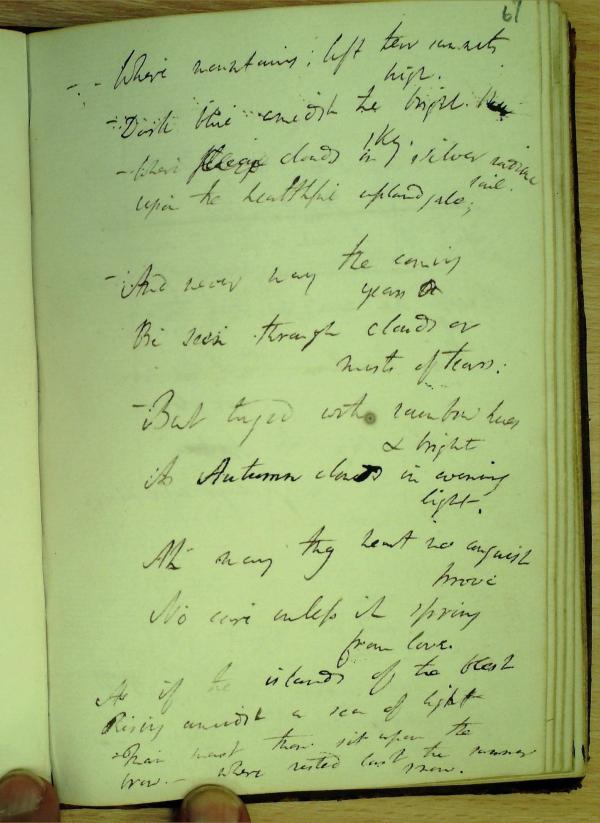 61
- - Where mountains lift their summits
high.
- Dark blue amidst the bright
sky,
- Where clouds in silver radiance
sail.
upon the healthful upland gale;
- And never may the coming
years
Be seen through clouds or
mists of tears:
- But tinged with rainbow hues
& bright
As Autumn clouds in evening
light.
Ah may thy heart no anguish
prove
No care unless it spring
from love.
As if the islands of the blest
Rising amidst a sea of light
Pain must then sit upon the
brow - where rested last the summer
snow.